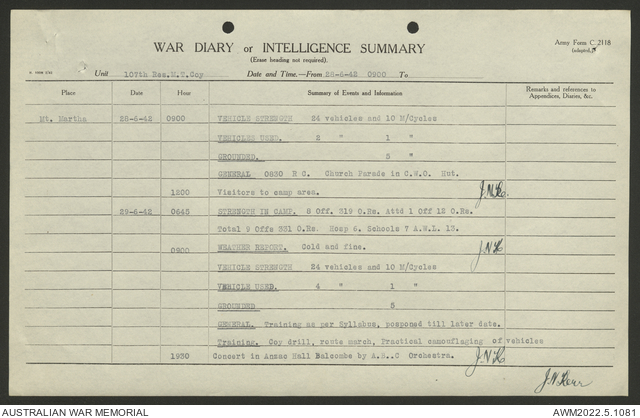 Army Form C 2118
(adapted)
WAR DIARY or INTELLIGENCE SUMMARY
(Erase heading not required).
Unit 107th Res.M.T.Coy Date and Time.—From 28-6-42 0900 To
Place Date Hour Summary of Events and Information Remarks and references to Appendices, Diaries, &c.
Mt. Martha 28-6-42 0900 VEHICLE STRENGTH 24 vehicles and 10 M/Cycles
VEHICLES USED. 2 " 1 "
GROUNDED. 5 "
GENERAL 0830 R C. Church Parade in C.W.O. Hut.
1200 Visitors to camp area.
29-6-42 0645 STRENGTH IN CAMP. 8 Off. 319 O.Rs. Attd 1 Off 12 O.Rs.
Total 9 Offs 331 O.Rs. Hosp 6. Schools 7 A.W.L. 13.
0900 WEATHER REPORT. Cold and fine.
VEHICLE STRENGTH 24 vehicles and 10 M/Cycles
VEHICLE USED. 4 " 1 "
GROUNDED 5
GENERAL. Training as per Syllabus, posponed till later date.
Training. Coy drill, route march, Practical camouflaging of vehicles
1930 Concert in Anzac Hall Balcombe by A.S.C Orchestra.
J.N.Kerr
AUSTRALIAN WAR MEMORIAL AWM2022.5.1081